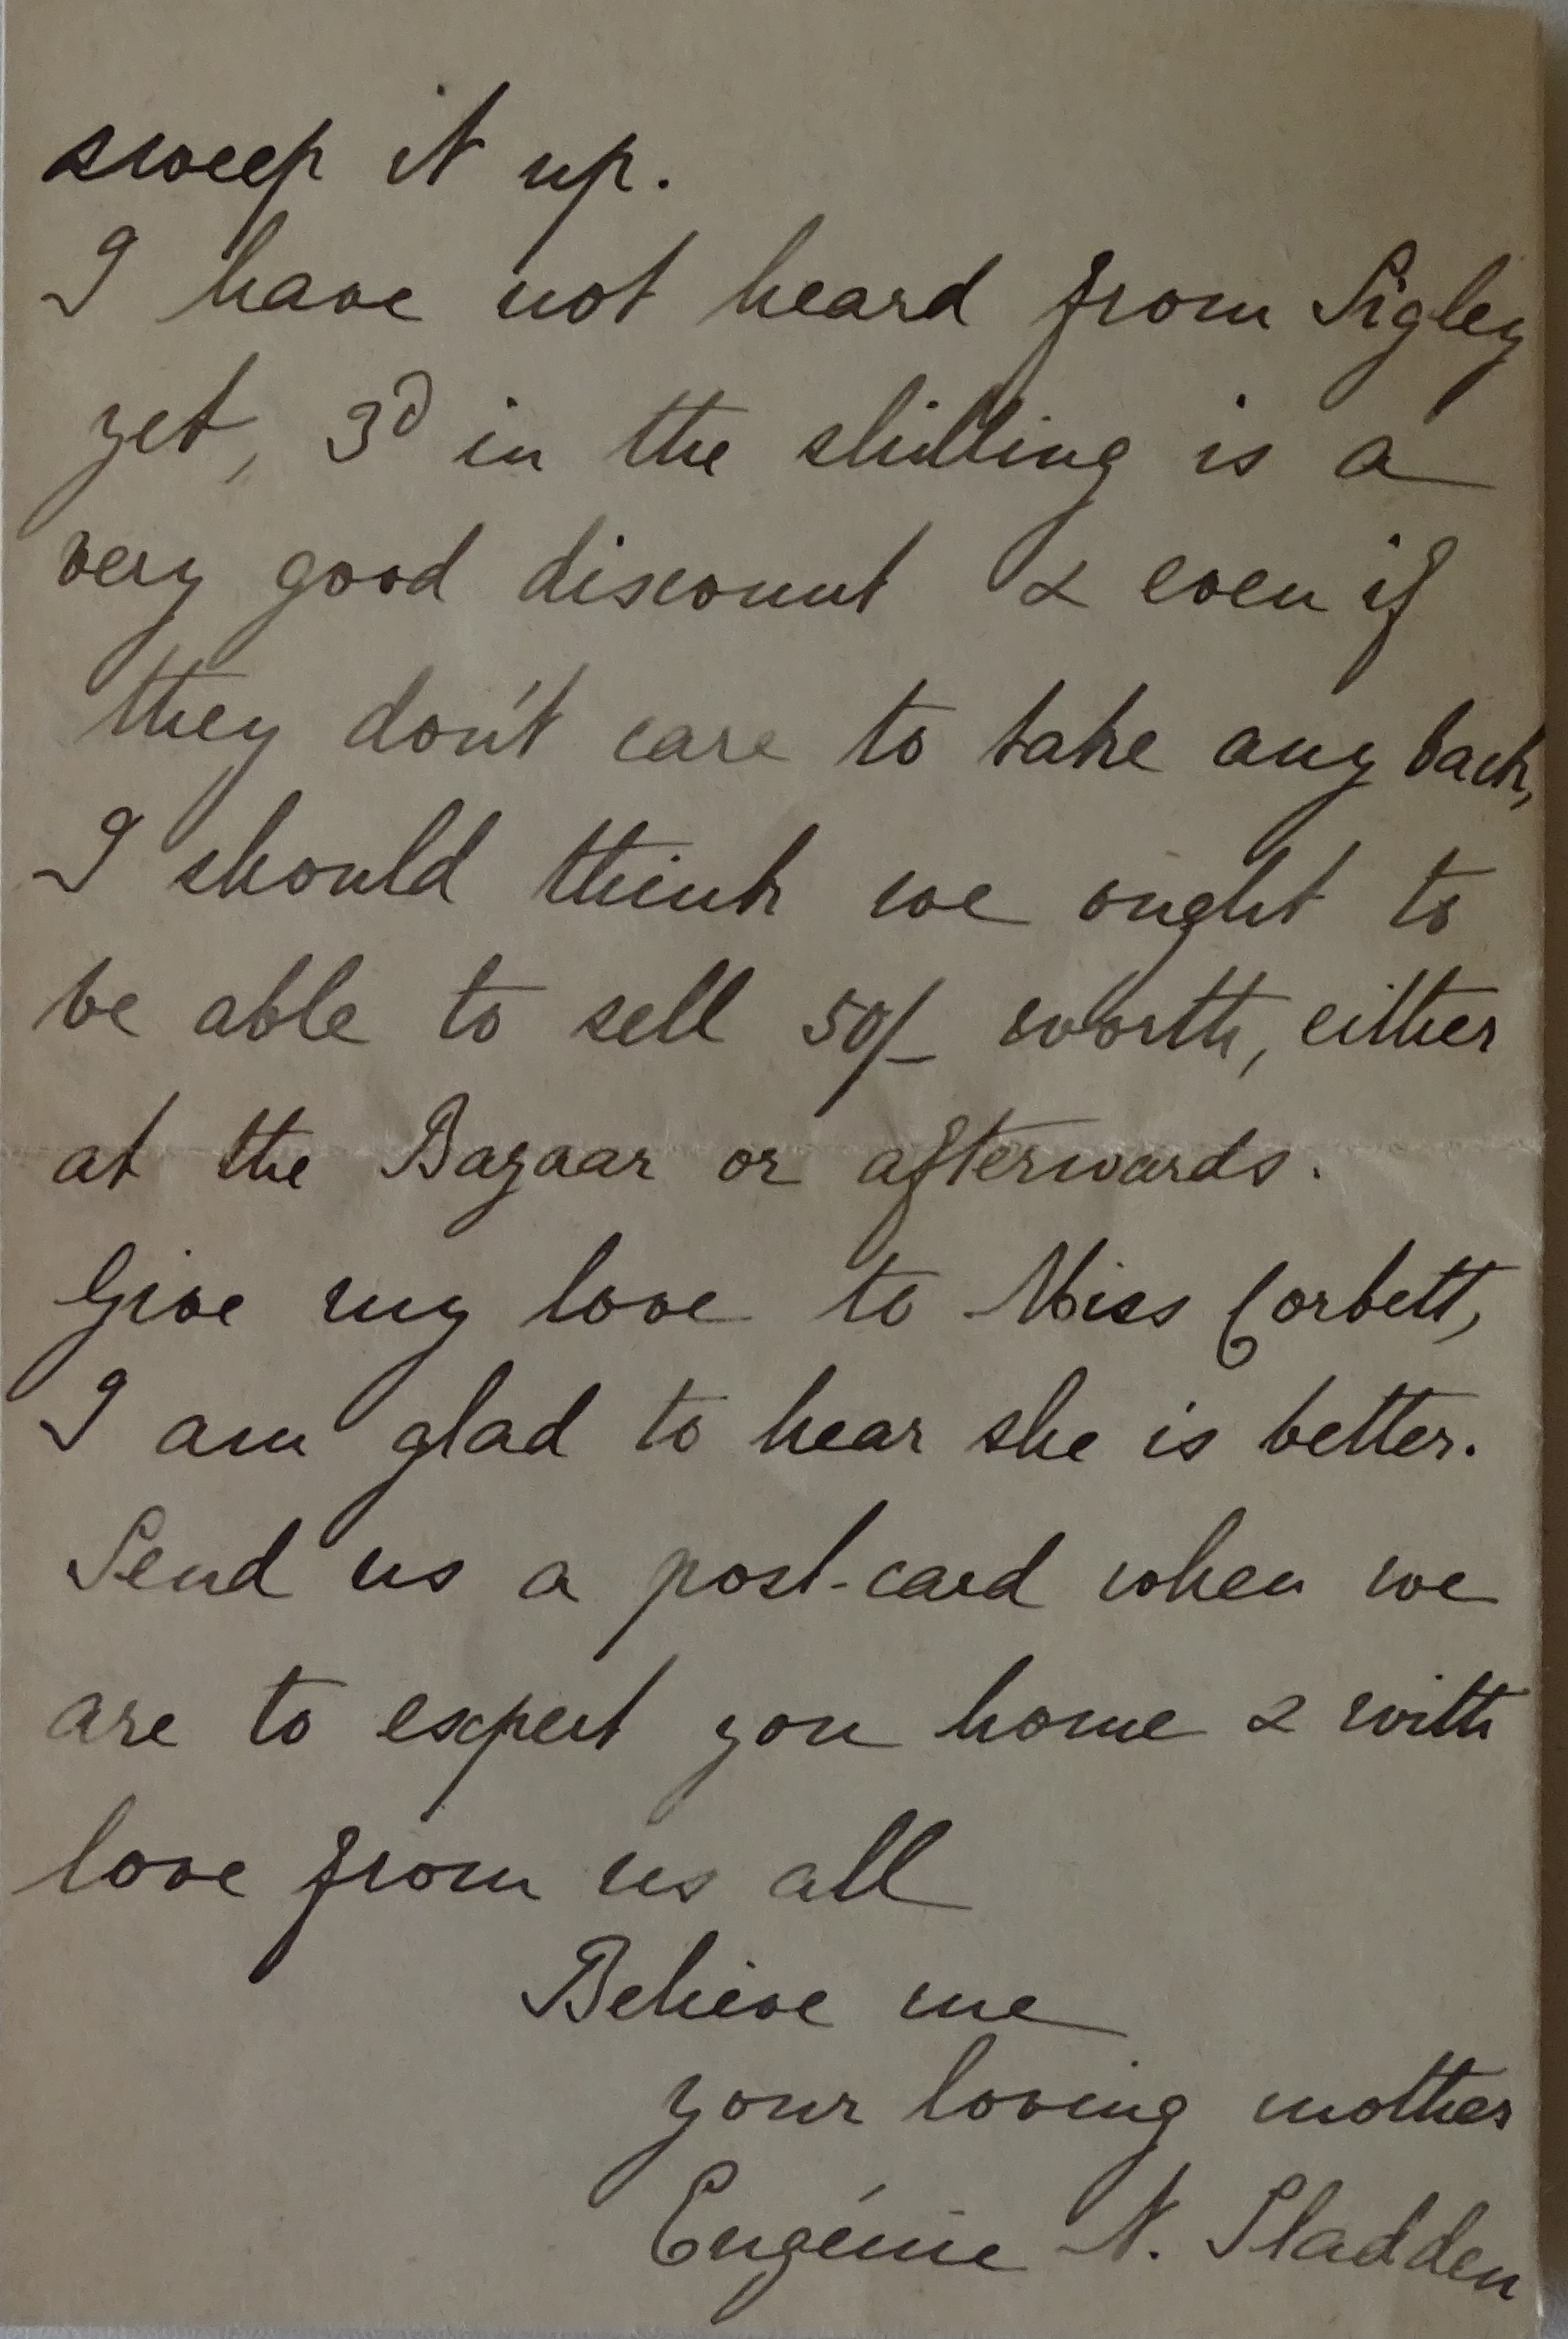 sweep it up.
I have not heard from Sigley
yet, 3d in the shilling is a
very good discount & even if
they don't care to take any back,
I should think we ought to
be able to sell 50/- worth, either
at the Bazaar or afterwards.
Give my love to Miss Corbett,
I am glad to hear she is better.
Send us a post-card when we
are to expect you home & with
love from us all
Believe me
your loving mother
Eugénie N. Sladden